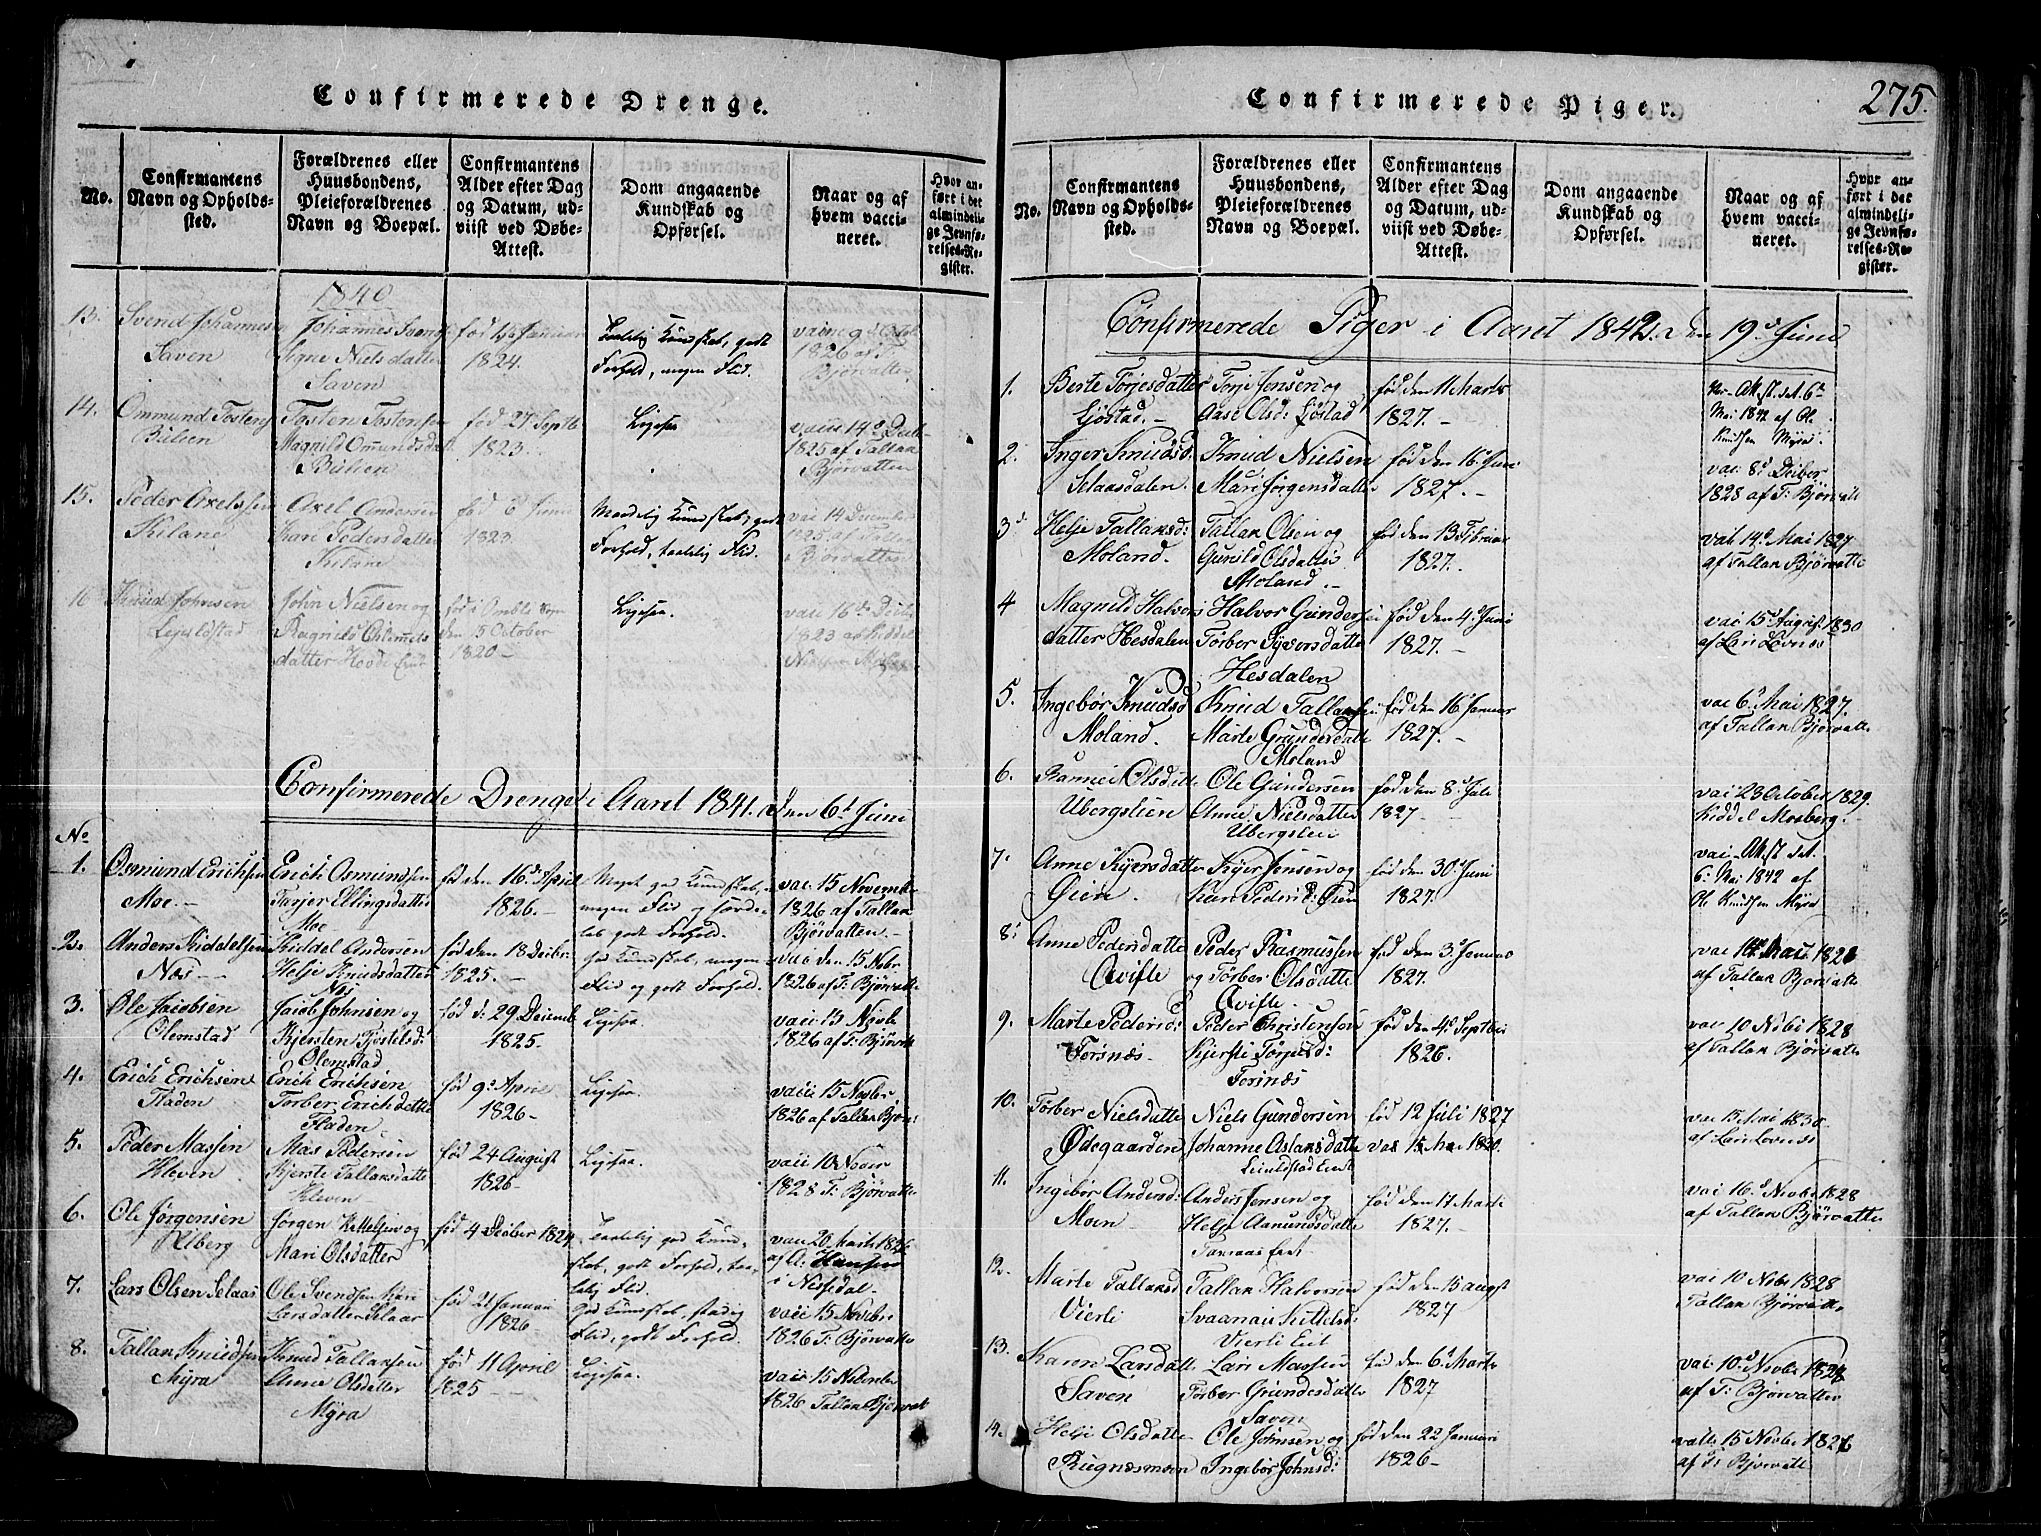 Confirmerede Drenge.
No.
Confirmantens Navn og Opholds-sted.
Forældrenes eller Huusbondens, Pleieforældrenes Navn og Boepæl.
Confirmantens Alder efter Dag og Datum, ud-viist ved Døbe-Attest.
Dom angaaende Kundskab og Opførsel.
Naar og af hvem vacci-neret.
Hvor an-ført i det almindeli-ge Jevnfø-relses-Re-gister.
1840
13. Svend Johannes
Saven
Johannes Svends
Signe Nielsdatter
Saven
1824.
Taalelig Kundskab, godt
Forhold, megen Flid.
1826 af T.
Bjørvatten
14. Ommund Tostens
Bülien
Tosten Tostensen
Magnild Omundsdat
Bülien
fød 27 Septb
1823.
Ligesaa
vacc 14d Decb
1825 af Tallan
Bjørvatten
15. Peder Axelsen
Kilane
Axel Andersen
Kari Pedersdatter
Kilane
1823.
Maadelig Kundskab, godt
Forhold, taalelig Flid.
vac 14 Decemb
1825 af Tallan
Bjørvatten
16 Knud Johnsen
Lejulstad
John Nielsen og
Ragnild
datter
den 15 October
1820 -
Ligesaa.
1823 af Kiddel
Confirmerede Drenge i Aaret 1841. den 6t Juni
No
1. Osmund Erichsen
Moe. -
Erich Osmundsen
Tarjer Ellingsdatter
Moe
fød den 16d April
1826. -
Meget god Kundskab,
megen Flid og
godt Forhold.
vac 15 Novembe
1826 af Tallan
Bjørvatten. -
2. Anders Kiddelsen
Næs -
Kiddel Andersen
Helje Knudsdatter
Næs
fød den 18 Decbr
1825. -
God Kundskab, megen
Flid og godt Forhold.
vac den 15 Nobr
1826 af T: Bjørvatte
3. Ole Jacobsen
Olemstad
Jacob Johnsen og
Kjersten Tjøstelsd:
Olemstad
fød d: 29 Decemb
1825.
Ligesaa.
vacc 15 Novbr
1826 af T: Bjørvatt
4. Erich Erichsen
Fladen
Erich Erichsen
Torber Erichdatter
Fladen
fød 9d April
1826 -
Ligesaa.
vacc 15 Novbr
1826 af Tallan Bjørv:
5. Peder Massen
Kleven
Mas Pedersen
Kjerste Tallansdatte
Kleven
fød 24 August
1826
Ligesaa.
vacc 10 Novbr
1828 T: Bjørvatte
6. Ole Jørgensen
Elberg
Jørgen Kettelsen og
Mari Olsdatter
fød 4 Decber 1824
Taalelig god Kund-
skab, godt Forhold, taa-
lelig Flid.
vacc 20 Marts 1826
af A: Hansen
i Nissedal
7. Lars Olsen Selaas
Ole Svendsen Kari
Larsdatter Selaas
fød 21 Januari
1826
God Kundskab, stadig
Flid, godt Forhold.
vacc 15 Novbr
1826 T: Bjørvatte
8. Tallan Knudsen
Myra
Knud Tallansen
Anne Olsdatter
Myra
fød 11 April
1825 -
Ligesaa.
vacc 15 Novembr
1826 Tallan Bjørvat
Confirmerede Piger.
275.
No.
Confirmantens Navn og Opholds-sted.
Forældrenes eller Huusbondens, Pleieforældrenes Navn og Boepæl.
Confirmantens Alder efter Dag og Datum, ud-viist ved Døbe-Attest.
Dom angaaende Kundskab og Opførsel.
Naar og af hvem vacci-neret.
Hvor an-ført i det almindeli-ge Jevnfø-relses-Re-gister.
Confirmerede Piger i Aaret 1842. den 19d Juni
1. Berte Torjesdatter
Ljøstad. -
Torje Jensen og
Aase Olsd: Ljøstad
fød den 11 Marts
1827. -
Attest dat. 6te
Mai 1842 af Ol
Knudsen Myra.
2. Inger Knudsd.
Selaasdalen.
Knud Nielsen
Mari Jørgensdatter
fød den 16d Juni
1827. -
vac: 8d Decber
1828 af T: Bjørvatt
3. Helje Tallansd:
Moland.
Tallan Olsen og
Gunild Olsdatter
Moland. -
fød den 13 Februar
1827. -
vac 14d Mai 1827
af Tallan Bjørvatte
4 Magnild Halvors
datter Hesdalen
Halvor Gundersen
Torber Syversdatte
Hesdalen
fød den 4d Juni
1827. -
vac 15d August 1830
af Lars Løvnes
5. Ingebor Knudsd
Moland.
Knud Tallansen
Marte Gundersdatte
Moland
fød den 16d Januar
1827. -
vac 6d Mai 1827
af Tallan Bjørvatte
6. Rannei Olsdatter
Ubergslien
Ole Gundersen
Anne Nielsdatter
Ubergslien
fød den 8d Juli
1827 -
vac 23 October 1829.
Kiddel Mosberg. -
7. Anne Kyersdatter
Øien.
Kyer Jensen og
Kari Pedersd: Øien
fød den 30d Juni
1827.
vac. Attest dat.
6. Mai 1842 af
Ol Knudsen Myra
8. Anne Pedersdatte
Qvifte
Peder Rasmussen
og Torber Olsdatte
Qvifte -
fød den 3d Januar
1827.
af Tallan Bjørvatte
9. Marte Pedersd:
Torsnæs -
Peder Christensen
Kjersti Torjusd:
Torsnæs
fød den 4d Septbr
1826.
vac 10 Nobr 1828
af Tallan Bjørvatte
10. Torber Nielsdatte
Ødegaarden
Niels Gundersen
Johanne Aslansdatte
fød 12 Juli 1827
vac 15 Mai 1830.
vac 15 Mai 1830.
af Lars Lovnes
11. Ingebor Andersd:
Moen
Anders Jensen og
Helje Aanundsdatte
fød den 17 Marts
1827. -
vac 16d Novbr 1828
af Tallan Bjørvatte
12. Marte Tallansd
Vierli
Tallan Halvorsen
Svaanau Kittelsd:
Vierli Eiet
fød den 15 augst
1827
vac 10 Nobr 1828
Tallan Bjørvatte
13. Karen Larsdatte
Saven
Lars Massen
Torber Gundersdatte
Saven
fød den 6d Marts
1827
vac 10d Novbr 1828
af T: Bjørvatten
14. Helje Olsdatte
Rugnæsmoen
Ole Johnsen og
Ingebor Johnsd:
fød den 22 Januari
1826 -
vatte 15 Novbr 1826
af T: Bjørvatte